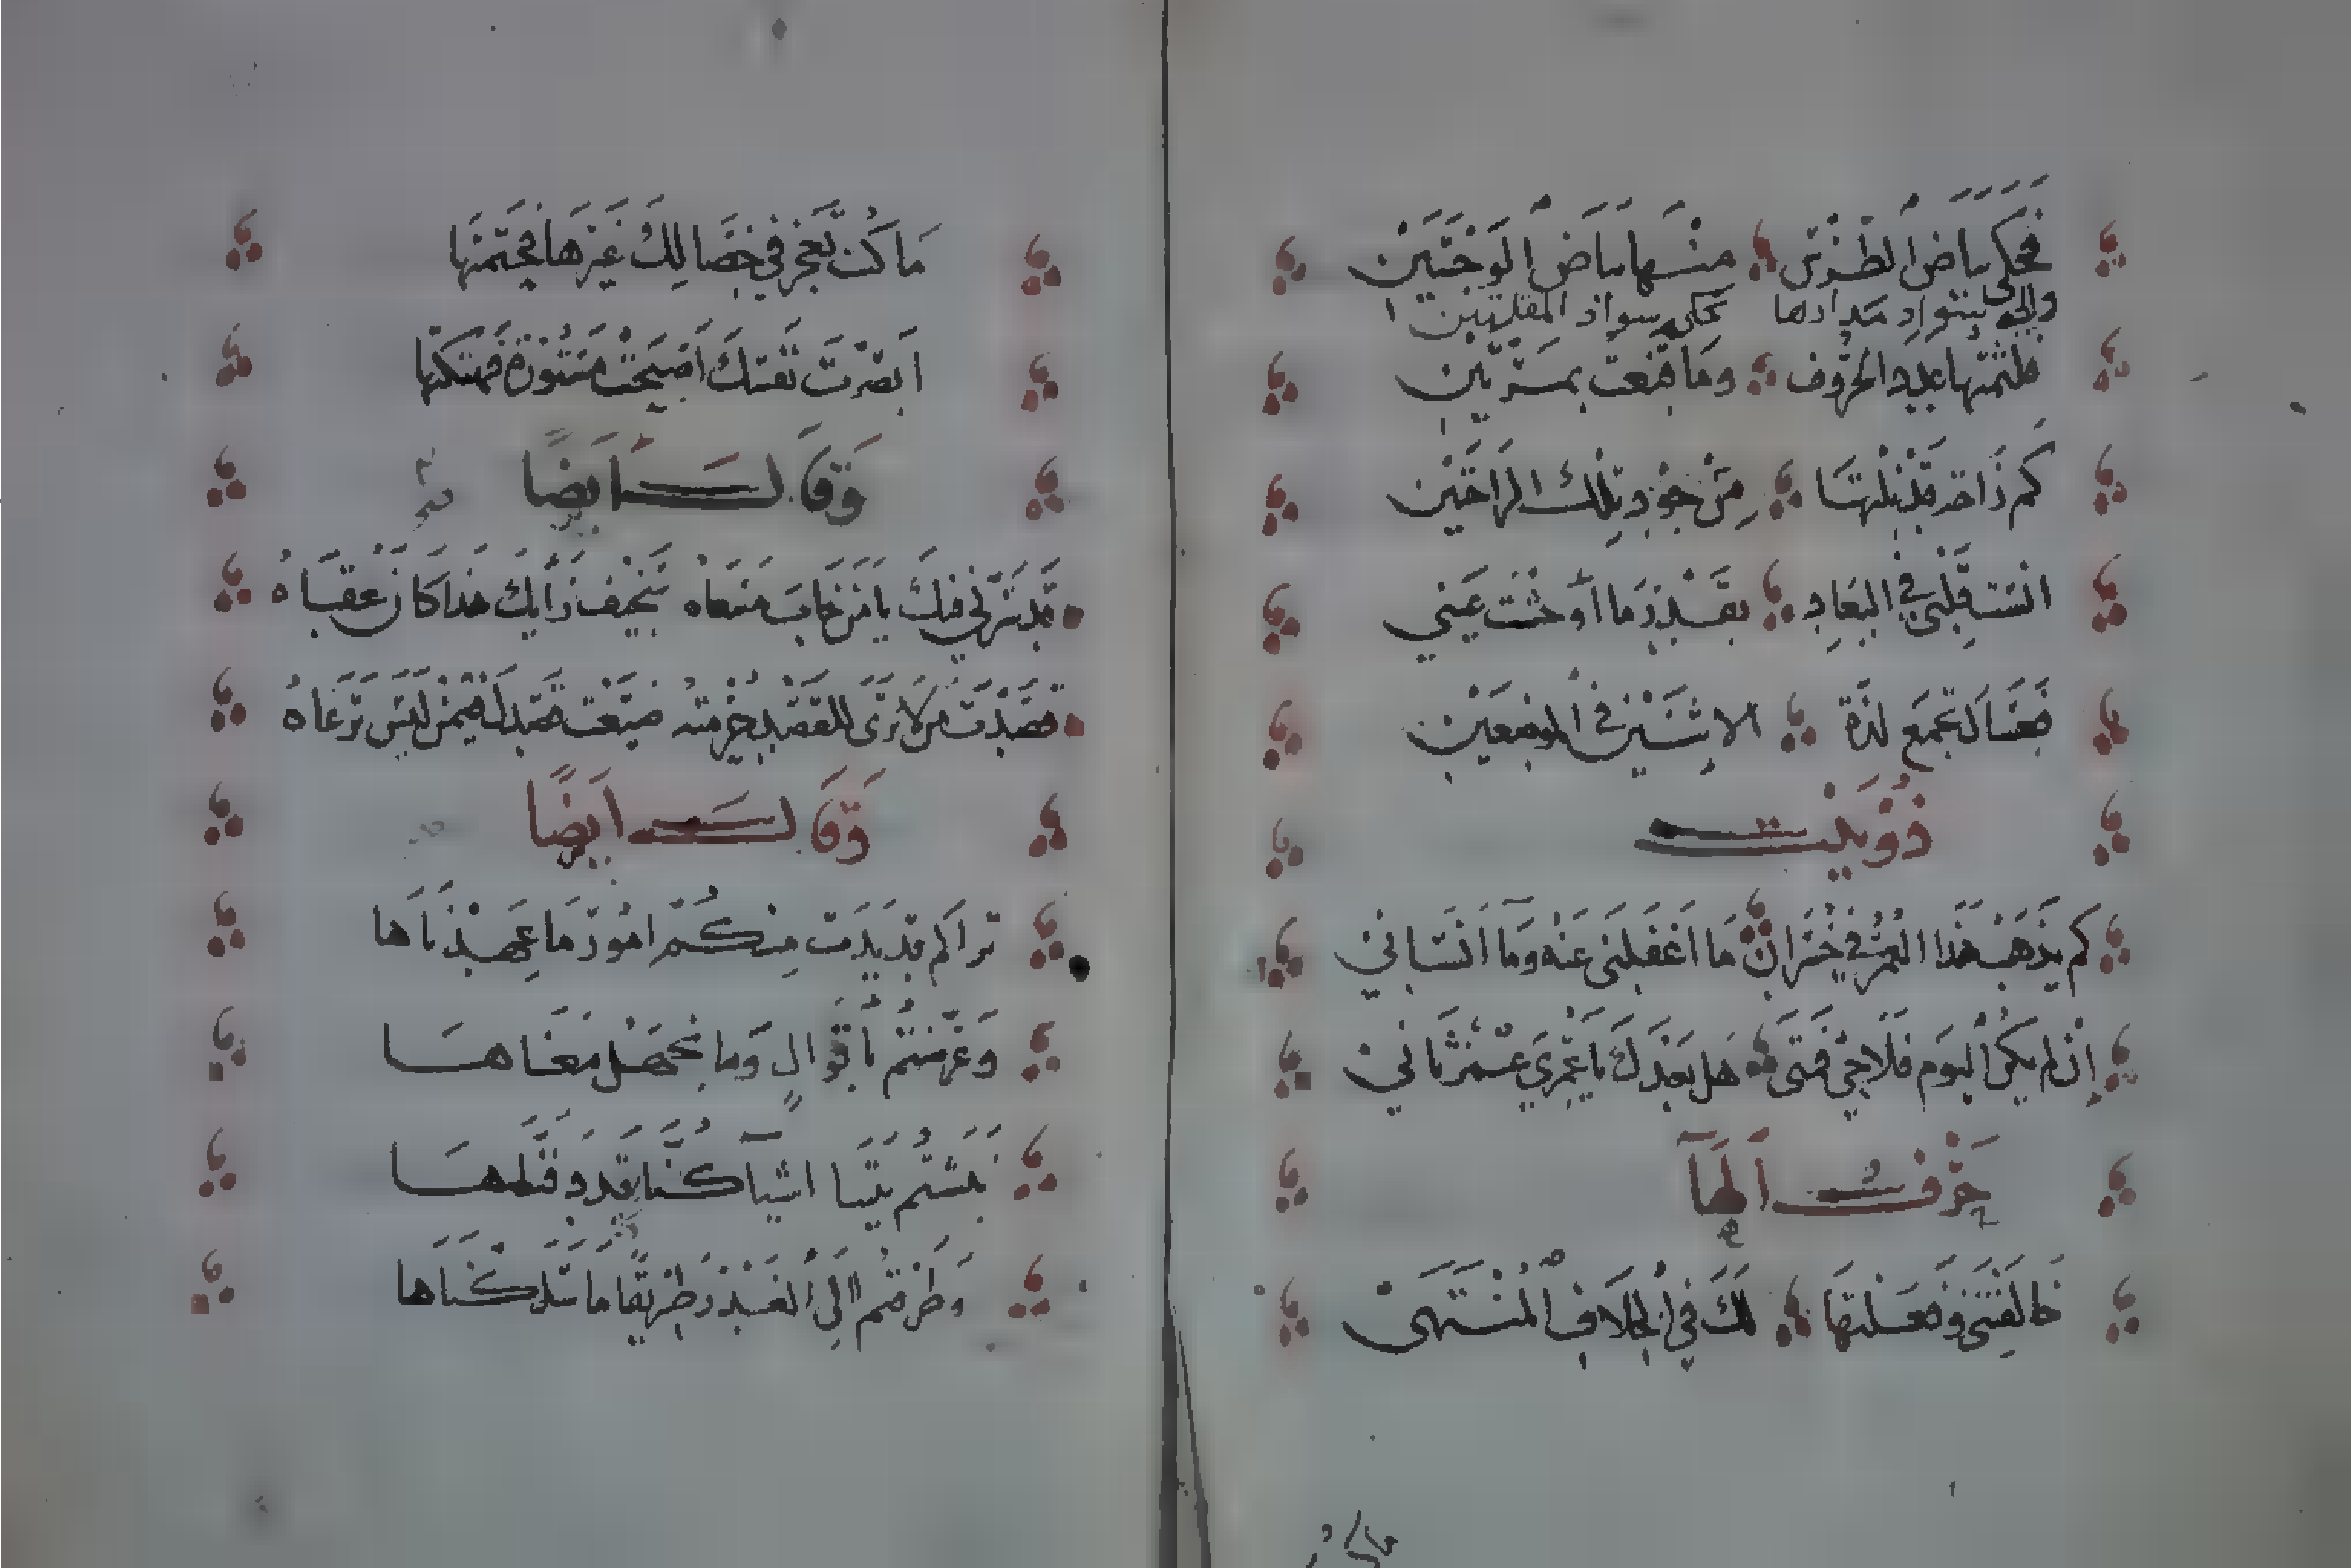 فحكى بياض الطرس منها بياض الوجنتين
وإلى بسواد مدادها تحكي سواد المقلتين
فلثمتها عدد الحروف وما قنعت بمرتين
كم راحة قبلتها من جود تلك الراحتين
انست قلبي في البعاد بقدر ما أوحشت عيني
فعسا لمجمع لذة الاثنين في الموضعين
دوبيت
كم يذهب هذا العمر في خسران ما اغفلني عنه وما انساني
إن لم يكن اليوم فلاحي فمتى هل بعدك يا عمري عمر ثاني
حرف الهآ
خالفتني وفعلتها لك في الخلاف المنتهى
ما كنت
ما كنت تعجز في خصالك غيرها فختمتها
ابصرت نفسك أصبحت مستورة فهتكتها
وقال أيضا
قد سرني فيك يا من خاب مسعاه سخيف رأيك هذا كان عقباه
قصدت من لا يرى للقصد حرمته ضيعت قصدك فيمن ليس يرعاه
وقال ايضا
تراكم قد بدت منكم امور ما عهدناها
وعرضتم بأقوال وما نجهل معناها
نبشتم بيننا اشيآ كنا قد دفناها
وطرقتم إلى الغدر طريقا ما سلكناها